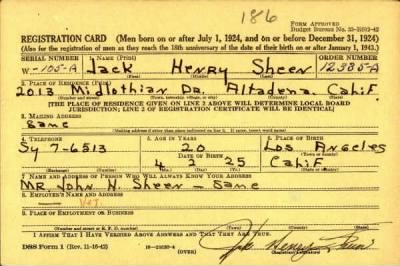 186
FORM APPROVED
Budget Bureau No. 33-R012-42
REGISTRATION CARD (Men born on or after July 1, 1924, and on or before December 31, 1924.)
(Also for the registration of men as they reach the 18th anniversary of the date of their birth on or after January 1, 1943.)
SERIAL NUMBER 1. NAME (Print) ORDER NUMBER
W-105-A Jack Henry Sheen 12385-A
(First) (Middle) (Last)
2. PLACE OF RESIDENCE (Print)
2013 Midlothian Dr. Altadena, Calif
(Number and street) (Town, township, village, or city) (County) (State)
[THE PLACE OF RESIDENCE GIVEN ON LINE 2 ABOVE WILL DETERMINE LOCAL BOARD
JURISDICTION; LINE 2 OF REGISTRATION CERTIFICATE WILL BE IDENTICAL]
3. MAILING ADDRESS
Same
[Mailing address if other than place indicated on line 2. If same, insert word same]
4. TELEPHONE 5. AGE IN YEARS 6. PLACE OF BIRTH
Sy 7-6513 20 Los Angeles
DATE OF BIRTH (Town or county)
4 2 25 Calif
(Exchange) (Number) (Mo.) (Day) (Yr.) (State or country)
7. NAME AND ADDRESS OF PERSON WHO WILL ALWAYS KNOW YOUR ADDRESS
Mr. John H. Sheen - Same
8. EMPLOYER'S NAME AND ADDRESS
Vet.
9. PLACE OF EMPLOYMENT OR BUSINESS
(Number and street or R. F. D. number) (Town) (County) (State)
I AFFIRM THAT I HAVE VERIFIED ABOVE ANSWERS AND THAT THEY ARE TRUE.
DSS Form 1 (Rev. 11-16-42) (OVER) Jack Henry Sheen